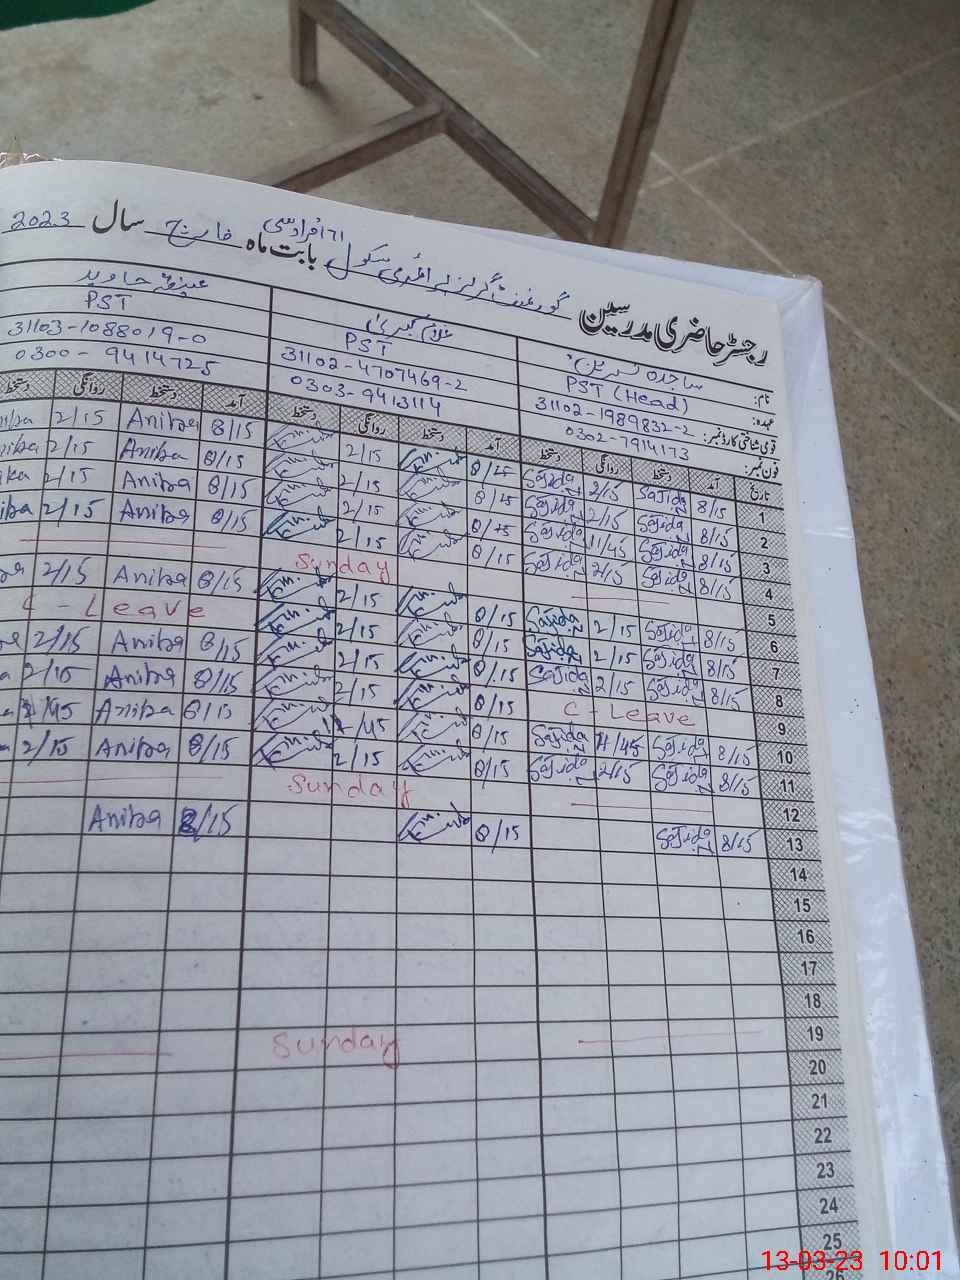 رجسٹر حاضری مدرسین گورنمنٹ گرلز پرائمری سکول 161 مراد بابت ماہ مارچ سال 2023
نام: ساجدہ نسرین غلام کبریٰ جاوید
عہدہ: PST (Head) PST PST
قومی شناختی کارڈ نمبر: 31102-1989832-2 31102-4707469-2 31103-1088019-0
فون نمبر: 0302-7914173 0303-9413114 0300-9414725
تاریخ آمد دستخط روانگی دستخط آمد دستخط روانگی دستخط آمد دستخط روانگی دستخط
1 8/15 Sajida 2/15 Sajida 8/15 2/15 8/15 Aniba 2/15
2 8/15 Sajida 2/15 Sajida 8/15 2/15 8/15 Aniba 2/15
3 8/15 Sajida 11/45 Sajida 8/15 2/15 8/15 Aniba 2/15
4 8/15 Sajida 2/15 Sajida 8/15 2/15 8/15 Aniba 2/15
5 Sunday
6 8/15 Sajida 2/15 Sajida 8/15 2/15 8/15 Aniba 2/15
7 8/15 Sajida 2/15 Sajida 8/15 2/15 C - Leave
8 8/15 Sajida 2/15 Sajida 8/15 2/15 8/15 Aniba 2/15
9 C - Leave 8/15 2/15 8/15 Aniba 2/15
10 8/15 Sajida 11/45 Sajida 8/15 8/15 Aniba
11 8/15 Sajida 2/15 Sajida 8/15 2/15 8/15 Aniba 2/15
12 Sunday
13 8/15 Sajida 8/15 8/15 Aniba
14
15
16
17
18
19 Sunday
20
21
22
23
24
25
26
13-03-23 10:01